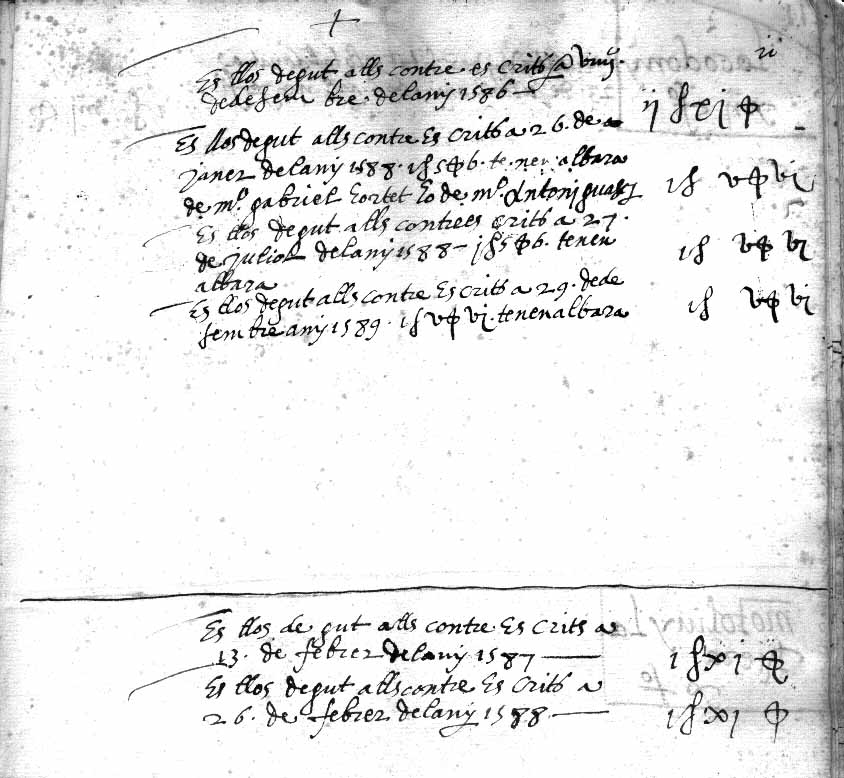 +
ii
Es llos degut alls contre es crits a viiij.
de desem bre. delany 1586 — ij ß xi φ
Es llos degut alls contre Es crits a 26. de
janer delany 1588. 1 ß 5 φ 6. te nen albara
de m.º gabriel hortet ho de m.º Antoni guasch 1 ß v φ vi
Es llos degut alls contrees crits a 27.
de juliol delany 1588 — j ß 5 φ 6. tenen 1 ß v φ vi
albara
Es llos degut alls contre Es crits a 29. de de
sembre any 1589. 1 ß v φ vi. tenen albara 1 ß v φ vi
Es llos de gut alls contre Es Crits a
13. de febrer delany 1587 — 1 ß xi φ
Es llos degut alls contre Es Crits a
26. de febrer delany 1588 — 1 ß xi φ